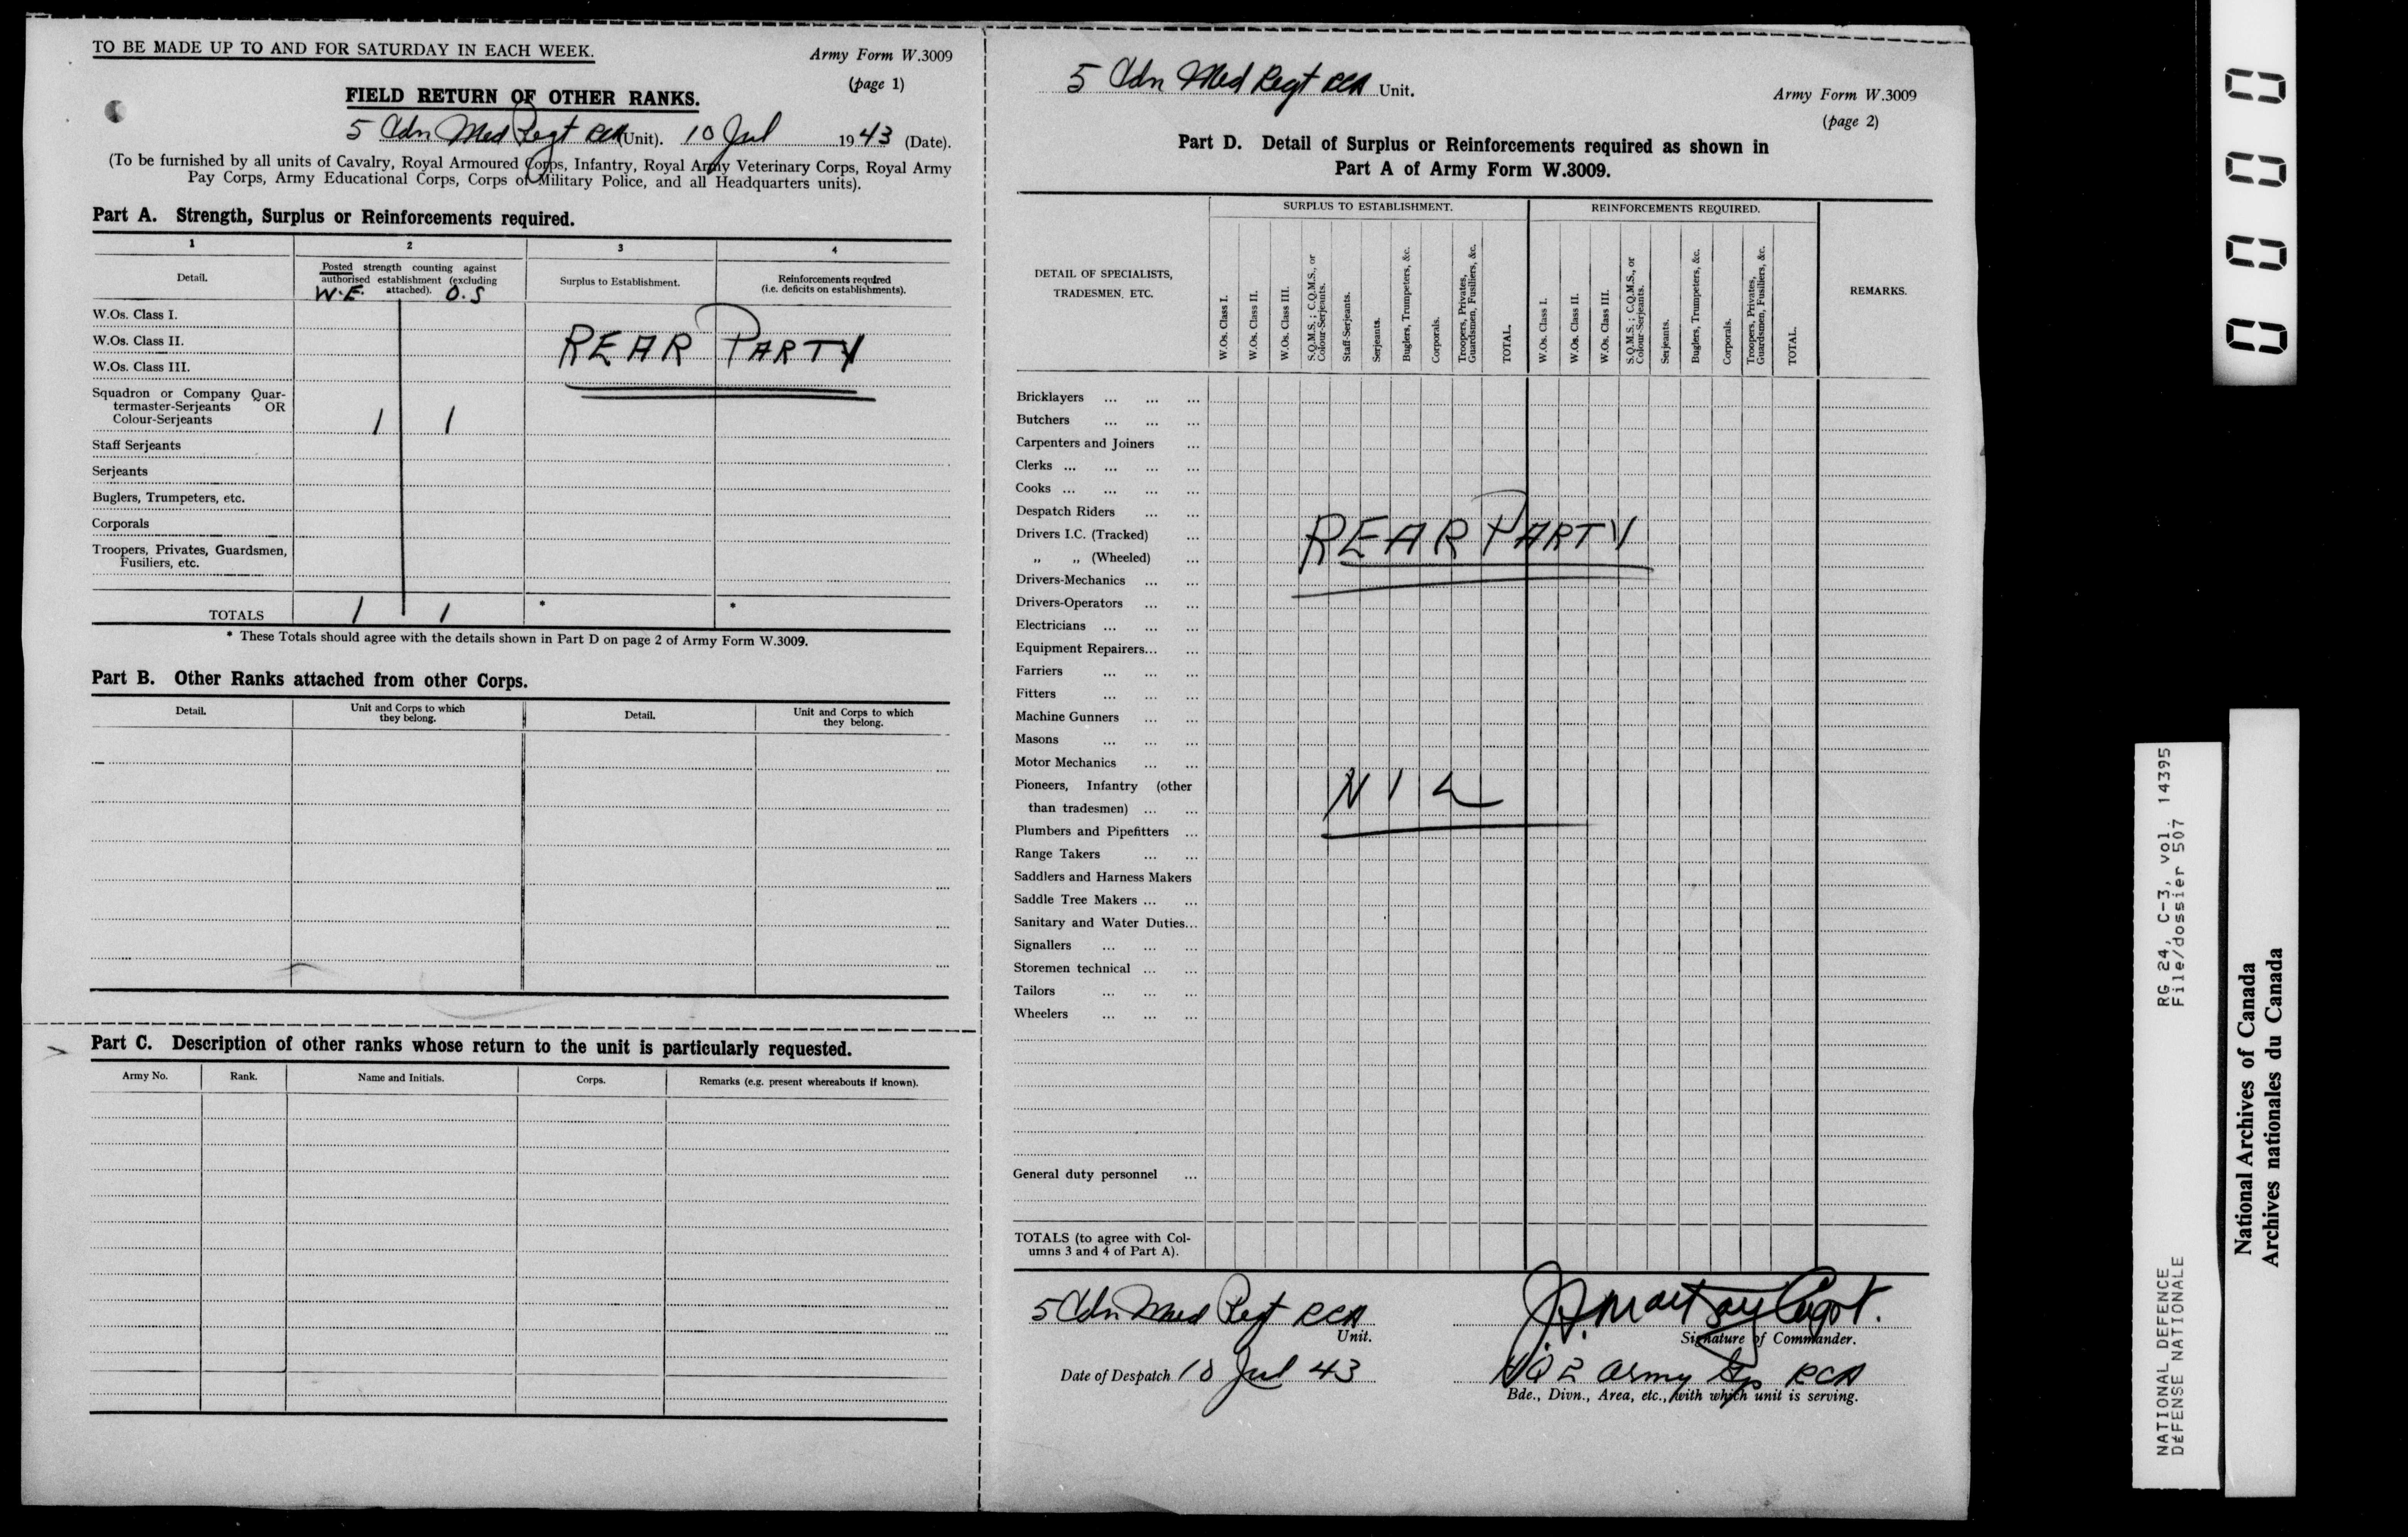 TO BE MADE UP TO AND FOR SATURDAY IN EACH WEEK.
Army Form W.3009
(page 1)
FIELD RETURN OF OTHER RANKS.
5 Cdn Med Regt RCA (Unit). 10 Jul 1943 (Date).
(To be furnished by all units of Cavalry, Royal Armoured Corps, Infantry, Royal Army Veterinary Corps, Royal Army
Pay Corps, Army Educational Corps, Corps of Military Police, and all Headquarters units).
Part A. Strength, Surplus or Reinforcements required.
1 2 3 4
Detail.
Posted strength counting against
authorised establishment (excluding
attached).
W.E. O.S
Surplus to Establishment.
Reinforcements required
(i.e. deficits on establishments).
W.Os. Class I.
W.Os. Class II.
REAR PARTY
W.Os. Class III.
Squadron or Company Quar-
termaster-Serjeants OR
Colour-Serjeants 1 1
Staff Serjeants
Serjeants
Buglers, Trumpeters, etc.
Corporals
Troopers, Privates, Guardsmen,
Fusiliers, etc.
TOTALS 1 1 * *
* These Totals should agree with the details shown in Part D on page 2 of Army Form W.3009.
Part B. Other Ranks attached from other Corps.
Detail.
Unit and Corps to which
they belong.
Detail.
Unit and Corps to which
they belong.
Part C. Description of other ranks whose return to the unit is particularly requested.
Army No. Rank. Name and Initials. Corps. Remarks (e.g. present whereabouts if known).
5 Cdn Med Regt RCA Unit.
Army Form W.3009
(page 2)
Part D. Detail of Surplus or Reinforcements required as shown in
Part A of Army Form W.3009.
SURPLUS TO ESTABLISHMENT. REINFORCEMENTS REQUIRED.
DETAIL OF SPECIALISTS,
TRADESMEN, ETC.
W.Os. Class I.
W.Os. Class II.
W.Os. Class III.
S.Q.M.S.; C.Q.M.S., or
Colour-Serjeants.
Staff-Serjeants.
Serjeants.
Buglers, Trumpeters, &c.
Corporals.
Troopers, Privates,
Guardsmen, Fusiliers, &c.
TOTAL.
W.Os. Class I.
W.Os. Class II.
W.Os. Class III.
S.Q.M.S.; C.Q.M.S., or
Colour-Serjeants.
Serjeants.
Buglers, Trumpeters, &c.
Corporals.
Troopers, Privates,
Guardsmen, Fusiliers, &c.
TOTAL.
REMARKS.
Bricklayers ... ... ...
Butchers ... ... ...
Carpenters and Joiners ...
Clerks ... ... ... ...
Cooks ... ... ... ...
Despatch Riders ... ...
Drivers I.C. (Tracked) ...
REAR PARTY
„ „ (Wheeled) ...
Drivers-Mechanics ... ...
Drivers-Operators ... ...
Electricians ... ... ...
Equipment Repairers... ...
Farriers ... ... ...
Fitters ... ... ...
Machine Gunners ... ...
Masons ... ... ...
Motor Mechanics ... ...
Pioneers, Infantry (other
NIL
than tradesmen) ... ...
Plumbers and Pipefitters ...
Range Takers ... ...
Saddlers and Harness Makers
Saddle Tree Makers ... ...
Sanitary and Water Duties...
Signallers ... ... ...
Storemen technical ... ...
Tailors ... ... ...
Wheelers ... ... ...
General duty personnel ...
TOTALS (to agree with Col-
umns 3 and 4 of Part A).
5 Cdn Med Regt RCA
Unit.
Capt.
Signature of Commander.
Date of Despatch 10 Jul 43
HQ 2 Army Gp RCA
Bde., Divn., Area, etc., with which unit is serving.
RG 24, C-3, vol. 14395
File/dossier 507
NATIONAL DEFENCE
DÉFENSE NATIONALE
National Archives of Canada
Archives nationales du Canada